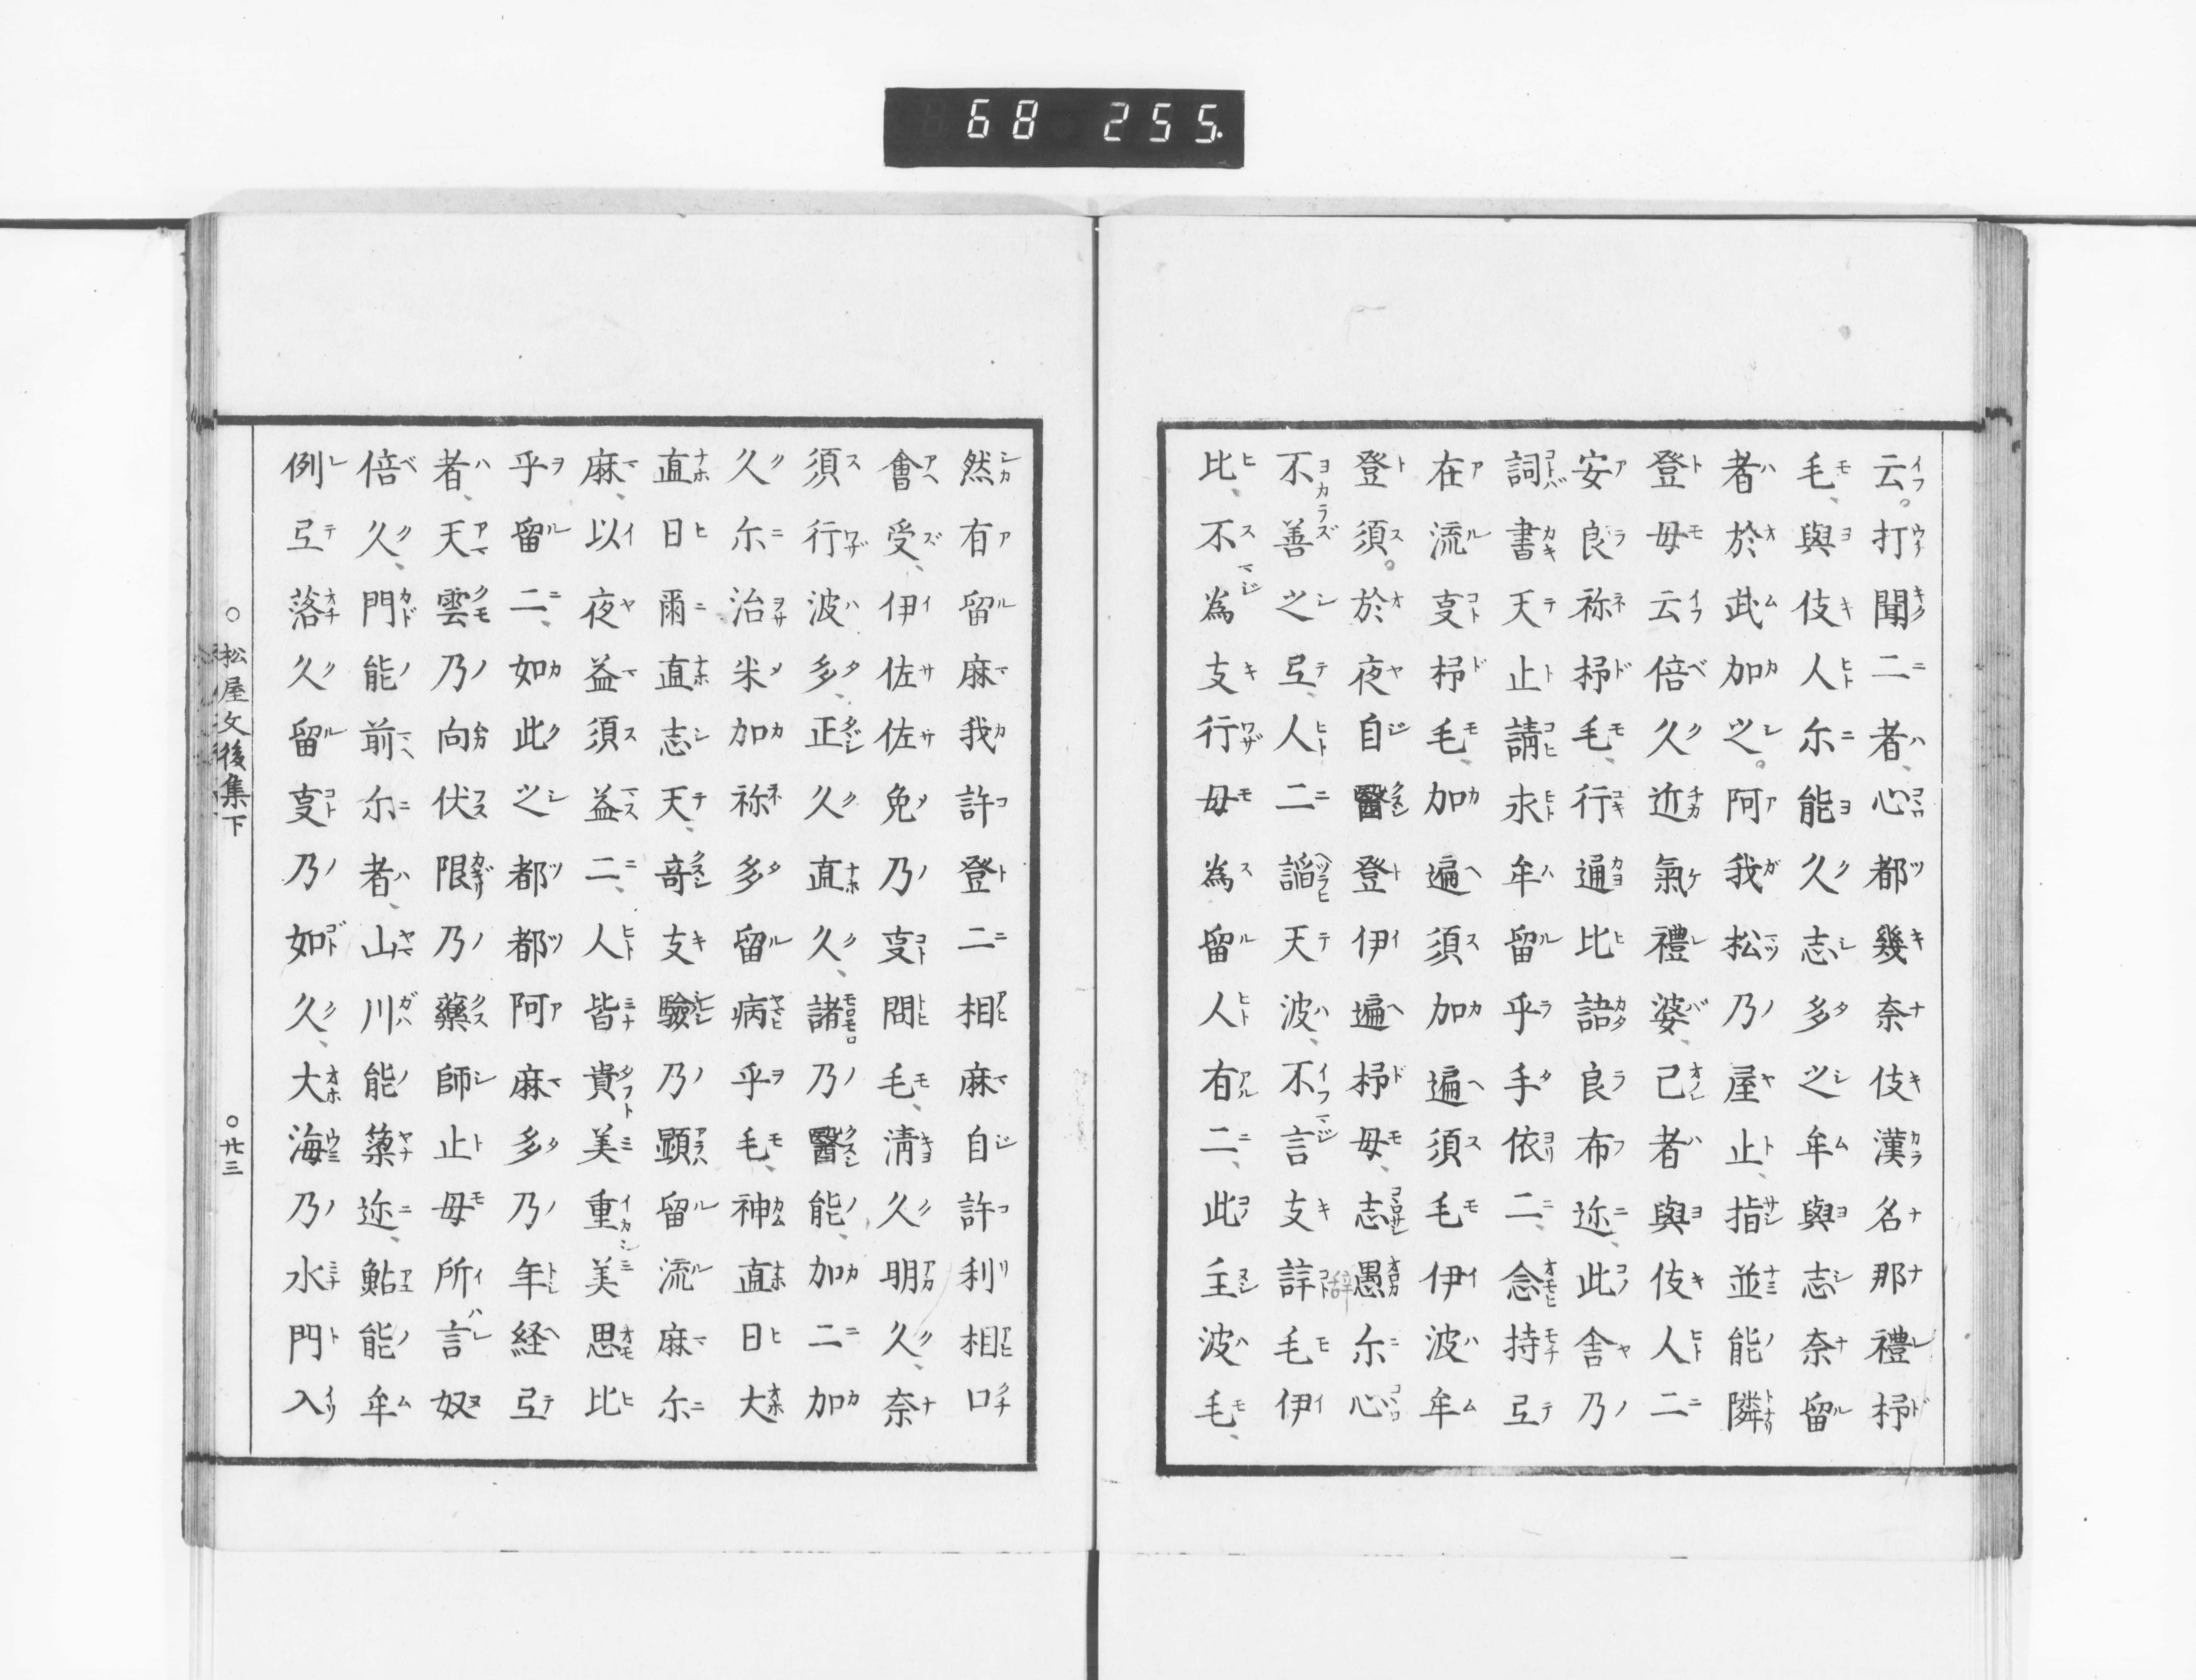 68 255.
云。打聞二者、心都幾奈伎漢名那禮杼
毛、與伎人尓能久志多之牟與志奈留
者於武加之。阿我松乃屋止、指並能隣
登毋云倍久近氣禮婆、己者與伎人二
安良祢杼毛、行通比語良布迩、此舎乃
詞書天止請求牟留乎手依二、念持弖
在流叓杼毛、加遍須加遍須毛伊波牟
登須。於夜自醫登伊遍杼毋、志愚尓心
不善之弖、人二謟天波、不言支辞毛伊
比、不為支行毋為留人有二、此主波毛、
然有留麻我許登二相麻自許利相口
會受、伊佐佐免乃叓問毛、淸久明久、奈
須行波多、正久直久、諸乃醫能、加二加
久尓治米加祢多留病乎毛、神直日大
直日爾直志天、竒支驗乃顕留流麻尓
麻、以夜益須益二、人皆貴美重美思比
乎留二、如此之都都阿麻多乃年経弖
者、天雲乃向伏限乃藥師止毋所言奴
倍久、門能前尓者、山川能簗迩、鮎能牟
例弖落久留叓乃如久、大海乃水門入
○松屋文後集下 ○廿三